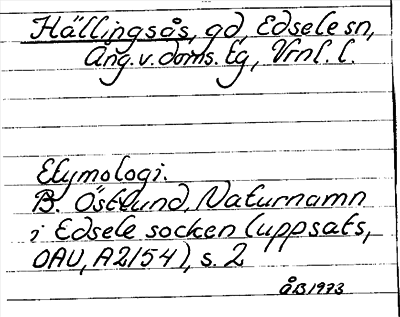 Hällingsås, gd, Edsele sn,
Ång. v. doms. lg, Vrnl. l.
Etymologi.
B. Östlund, Naturnamn
i Edsele socken (uppsats,
OAU, A2154), s. 2
ÅB 1973